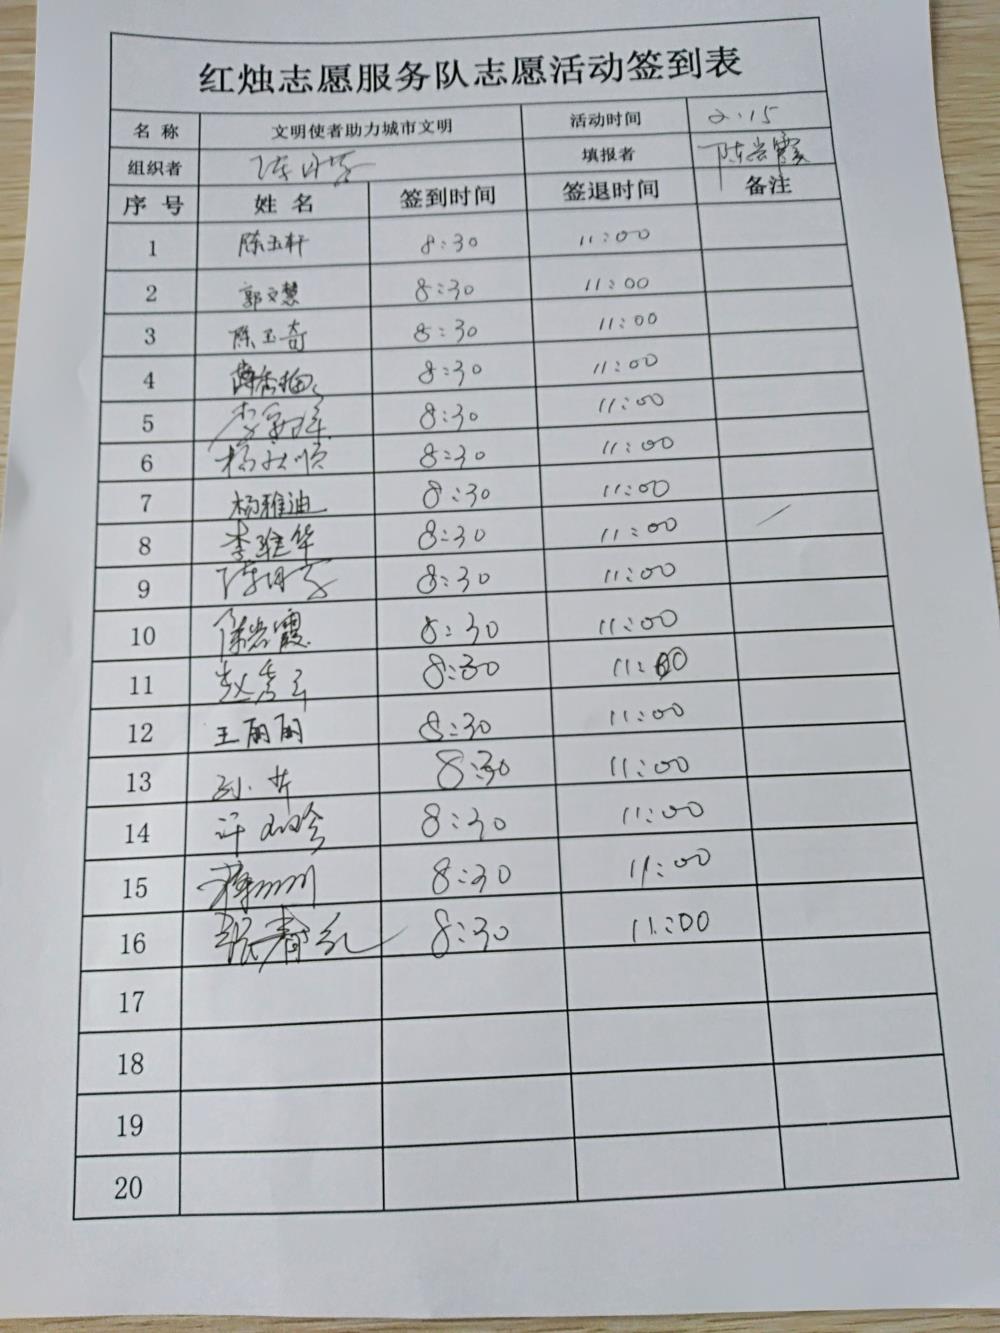 红烛志愿服务队志愿活动签到表
名 称 文明使者助力城市文明 活动时间 2.15
组织者 填报者 陈岩霞
序 号 姓 名 签到时间 签退时间 备注
1 陈玉轩 8:30 11:00
2 郭文慧 8:30 11:00
3 陈玉奇 8:30 11:00
4 8:30 11:00
5 8:30 11:00
6 8:30 11:00
7 杨雅迪 8:30 11:00
8 李维华 8:30 11:00
9 8:30 11:00
10 陈岩霞 8:30 11:00
11 赵秀云 8:30 11:00
12 王丽丽 8:30 11:00
13 8:30 11:00
14 8:30 11:00
15 8:30 11:00
16 张春红 8:30 11:00
17
18
19
20